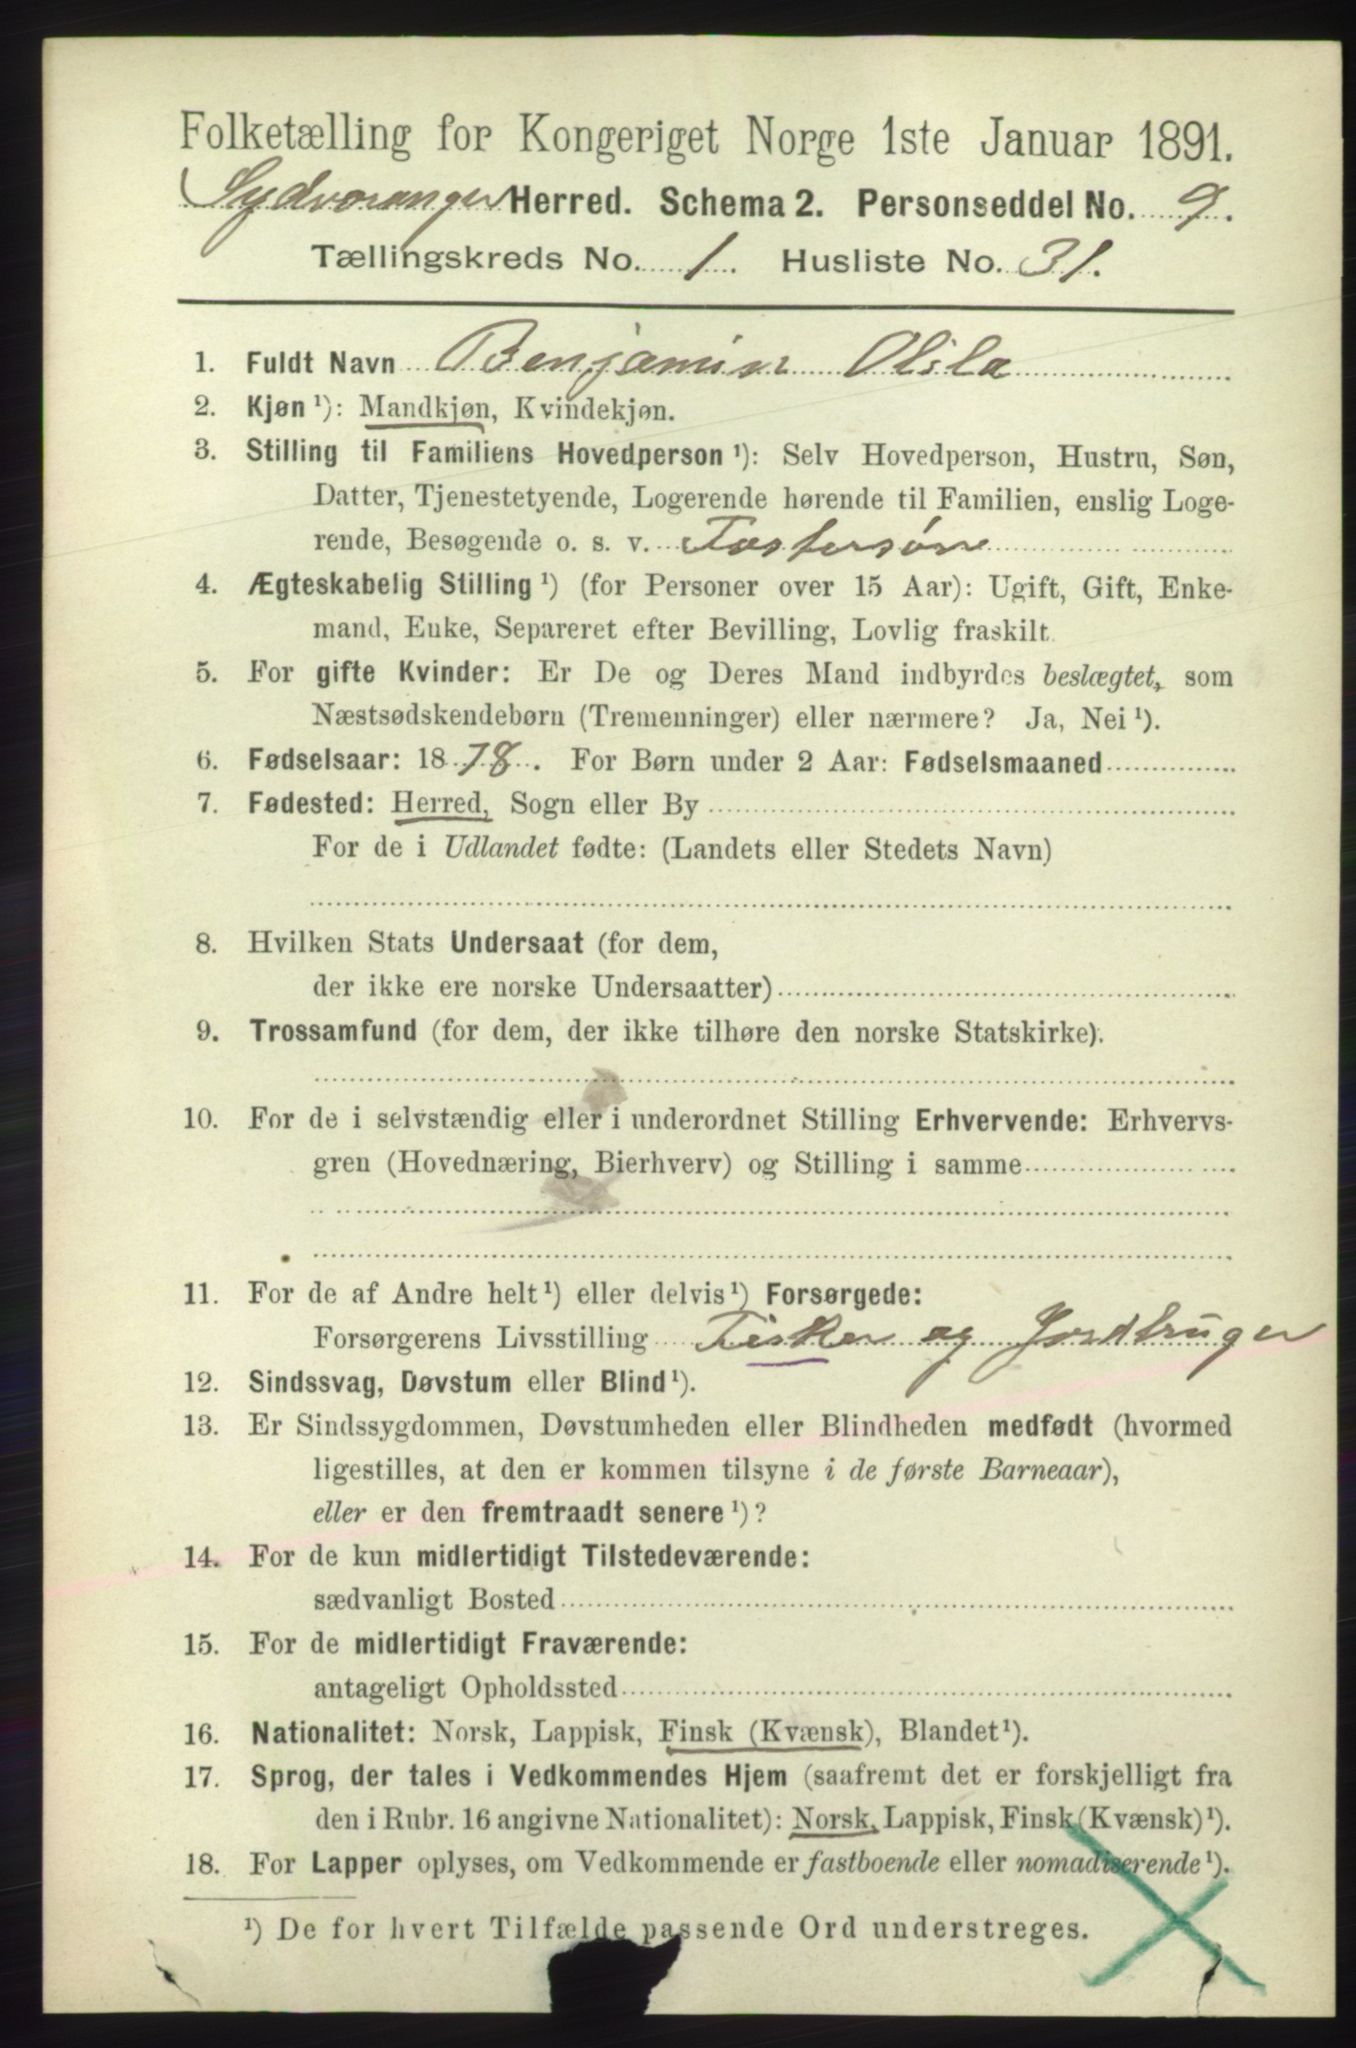 Folketælling for Kongeriget Norge 1ste Januar 1891.
Sydvaranger Herred. Schema 2. Personseddel No. 9.
Tællingskreds No. 1. Husliste No. 31.
1. Fuldt Navn Benjamin Olila
2. Kjøn ¹): Mandkjøn, Kvindekjøn.
3. Stilling til Familiens Hovedperson ¹): Selv Hovedperson, Hustru, Søn,
Datter, Tjenestetyende, Logerende hørende til Familien, enslig Loge-
rende, Besøgende o. s. v. Fostersøn
4. Ægteskabelig Stilling ¹) (for Personer over 15 Aar): Ugift, Gift, Enke-
mand, Enke, Separeret efter Bevilling, Lovlig fraskilt.
5. For gifte Kvinder: Er De og Deres Mand indbyrdes beslægtet, som
Næstsødskendebørn (Tremenninger) eller nærmere? Ja, Nei ¹).
6. Fødselsaar: 1878. For Børn under 2 Aar: Fødselsmaaned
7. Fødested: Herred, Sogn eller By
For de i Udlandet fødte: (Landets eller Stedets Navn)
8. Hvilken Stats Undersaat (for dem,
der ikke ere norske Undersaatter)
9. Trossamfund (for dem, der ikke tilhøre den norske Statskirke).
10. For de i selvstændig eller i underordnet Stilling Erhvervende: Erhvervs-
gren (Hovednæring, Bierhverv) og Stilling i samme
11. For de af Andre helt ¹) eller delvis ¹) Forsørgede:
Forsørgerens Livsstilling Fisker og Jordbruger
12. Sindssvag, Døvstum eller Blind ¹).
13. Er Sindssygdommen, Døvstumheden eller Blindheden medfødt (hvormed
ligestilles, at den er kommen tilsyne i de første Barneaar),
eller er den fremtraadt senere ¹)?
14. For de kun midlertidigt Tilstedeværende:
sædvanligt Bosted
15. For de midlertidigt Fraværende:
antageligt Opholdssted
16. Nationalitet: Norsk, Lappisk, Finsk (Kvænsk), Blandet ¹).
17. Sprog, der tales i Vedkommendes Hjem (saafremt det er forskjelligt fra
den i Rubr. 16 angivne Nationalitet): Norsk, Lappisk, Finsk (Kvænsk) ¹).
18. For Lapper oplyses, om Vedkommende er fastboende eller nomadiserende ¹).
¹) De for hvert Tilfælde passende Ord understreges.